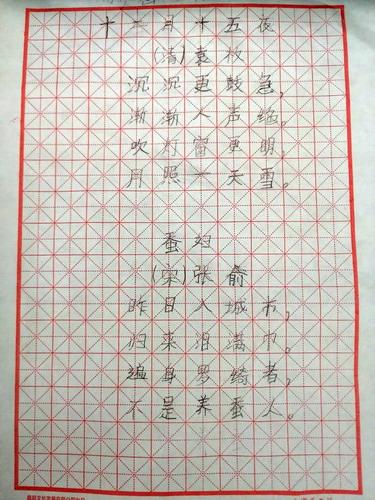 十二月十五夜
(清)袁枚
沉沉更鼓急,
渐渐人声绝。
吹灯窗更明,
月照一天雪。
蚕妇
(宋)张俞
昨日入城市,
归来泪满巾。
遍身罗绮者,
不是养蚕人。